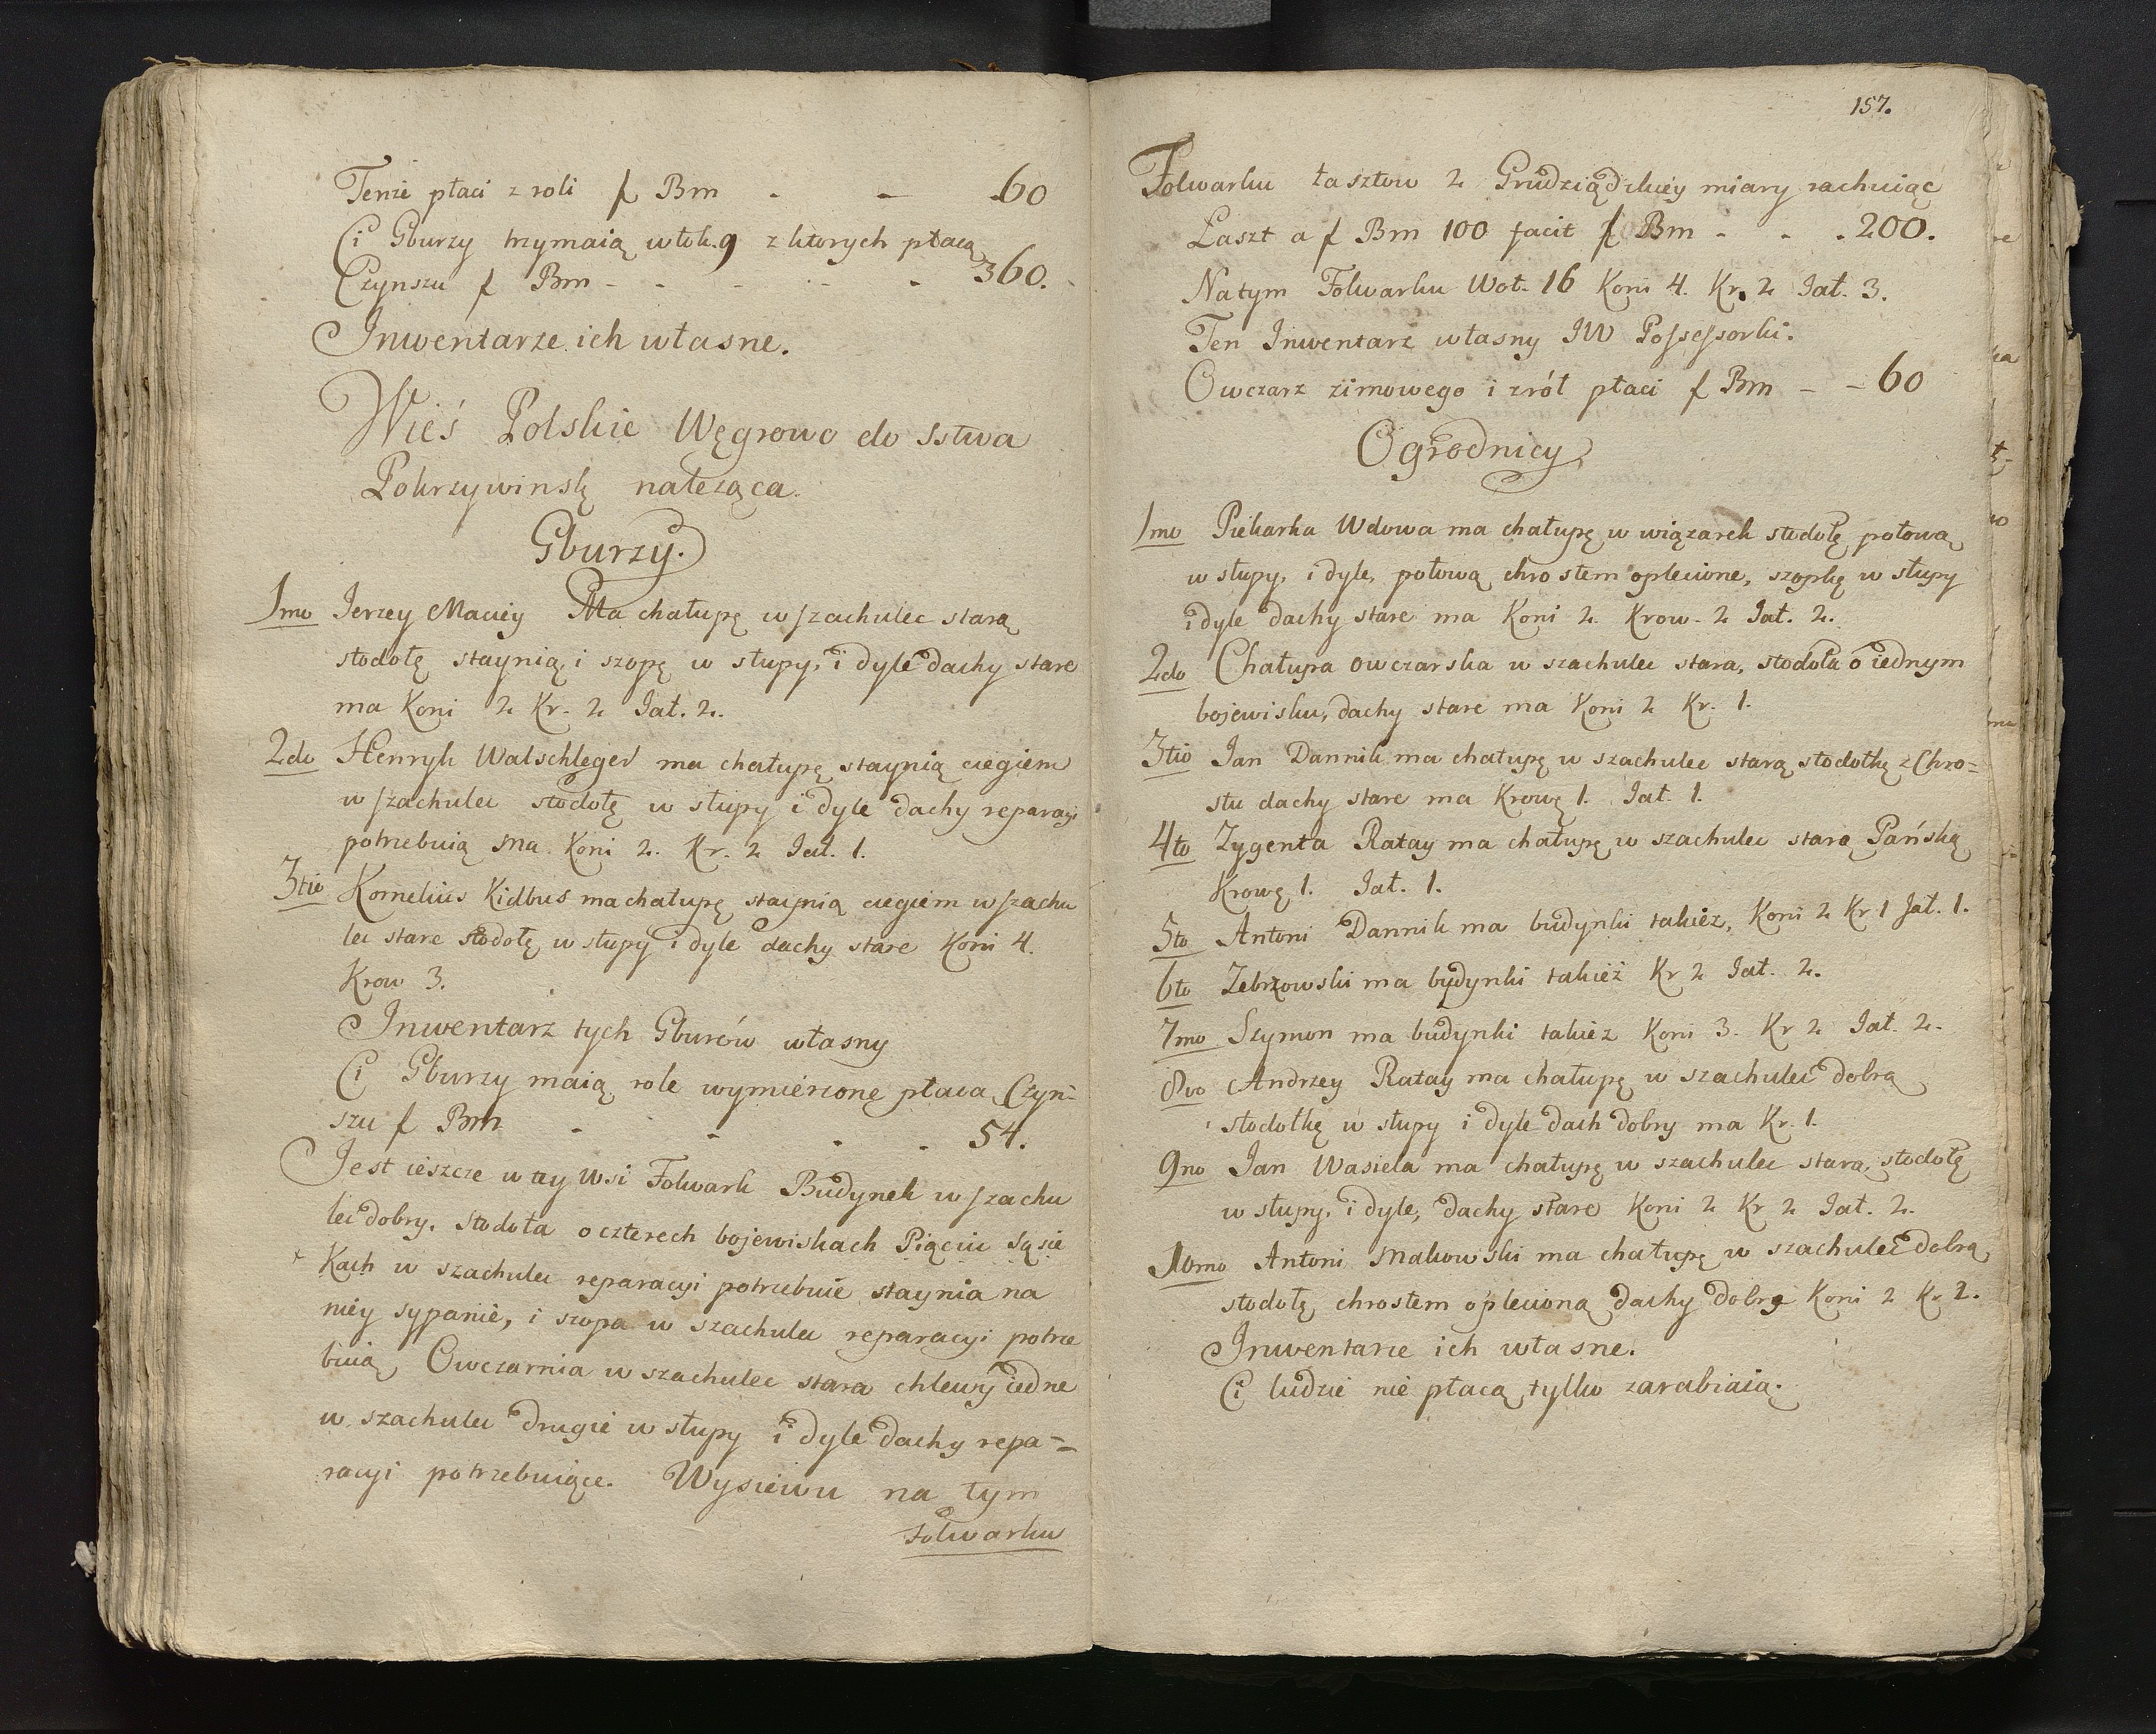 Tenże płaci z roli f Bm - - 60
Ci Gburzy trzymaią włok. 9 z ktorych płacą
Czynszu f Bm - - - - - 360.
Inwentarze ich własne.
Wieś Polskie Węgrowo do Sstwa
Pokrzywinsk. należąca.
Gburzy.
1mo Jerzey Maciey Ma chałupę w szachulec starą
stodołę staynią i szopę w słupy, i dyle dachy stare
ma Koni 2 Kr. 2 Jał. 2.
2do Henryk Walschleger ma chałupę staynią ciegiem
w szachulec stodołę w słupy i dyle dachy reparacyi
potrzebuią ma Koni 2. Kr. 2 Jał. 1.
3tio Kornelius Kidbus ma chałupę staynią ciegiem w szachu
lec stare stodołę w słupy i dyle dachy stare Koni 4.
Krow 3.
Inwentarz tych Gburów własny
Ci Gburzy maią role wymierzone płaca Czyn-
szu f Bm - - - - 54.
Jest ieszcze w tey Wsi Folwark Budynek w szachu
lec dobry. Stodoła o czterech bojewiskach Piąciu Sąsie
kach w szachulec reparacyi potrzebuie staynia na
niey sypanie, i szopa w szachulec reparacyi potrze
buią, Owczarnia w szachulec stara chlewy iedne
w szachulec drugie w słupy i dyle dachy repa-
racyi potrzebuiące. Wysiewu na tym
Folwarku
157.
Folwarku łasztow 2 Grudziądzkiey miary rachuiąc
Łaszt a f Bm 100 facit f Bm - - - 200.
Na tym Folwarku Woł. 16 Koni 4. Kr. 2 Jał. 3.
Ten Inwentarz własny JW Possessorki.
Owczarz zimowego i zról płaci f Bm - - 60
Ogrodnicy
1mo Piekarka Wdowa ma chałupę w wiązarek stodołę połową
w słupy, i dyle, połową chrostem oplecione, szopkę w słupy
i dyle dachy stare ma Koni 2. Krow. 2 Jał. 2.
2do Chałupa owczarska w szachulec stara, stodoła o iednym
bojewisku, dachy stare ma Koni 2 Kr. 1.
3tio Jan Dannik ma chałupę w szachulec starą stodołkę z Chro=
stu dachy stare ma Krowę 1. Jał. 1.
4to Zygenta Ratay ma chałupę w szachulec stara Pańską
Krowę 1. Jał. 1.
5to Antoni Dannik ma budynki takież, Koni 2 Kr 1 Jał. 1.
6to Zebrzowski ma budynki takież Kr 2 Jał. 2.
7mo Szymon ma budynki takież Koni 3. Kr 2 Jał. 2.
8vo Andrzey Ratay ma chałupę w szachulec dobrą
stodołkę w słupy i dyle dach dobry ma Kr. 1.
9no Jan Wasiela ma chałupę w szachulec stara, stodołę
w słupy, i dyle, dachy stare Koni 2 Kr 2 Jał. 2.
10mo Antoni Makowski ma chałupę w szachulec dobrą,
stodołę chrostem oplecioną dachy dobre Koni 2 Kr 2.
Inwentarze ich własne.
Ci ludzie nie płacą tylko zarabiaią.